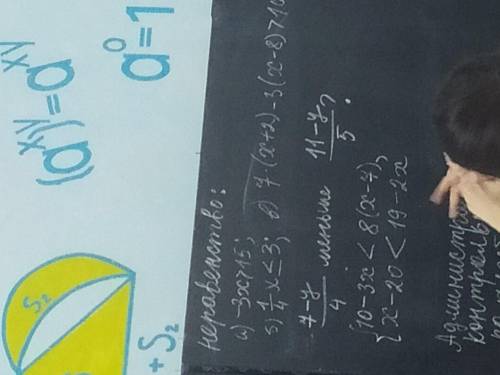 (a^x)^y = a^xy
a^0 = 1
S₂
+ S₂
неравенство:
а) -3x>15;
б) 1/4 x ≤ 3; в) 7(x+2)-3(x-8)>10
7-y/4 меньше 11-y/5?
{10-3x < 8(x-7),
x-20 < 19-2x
Админист
контроль